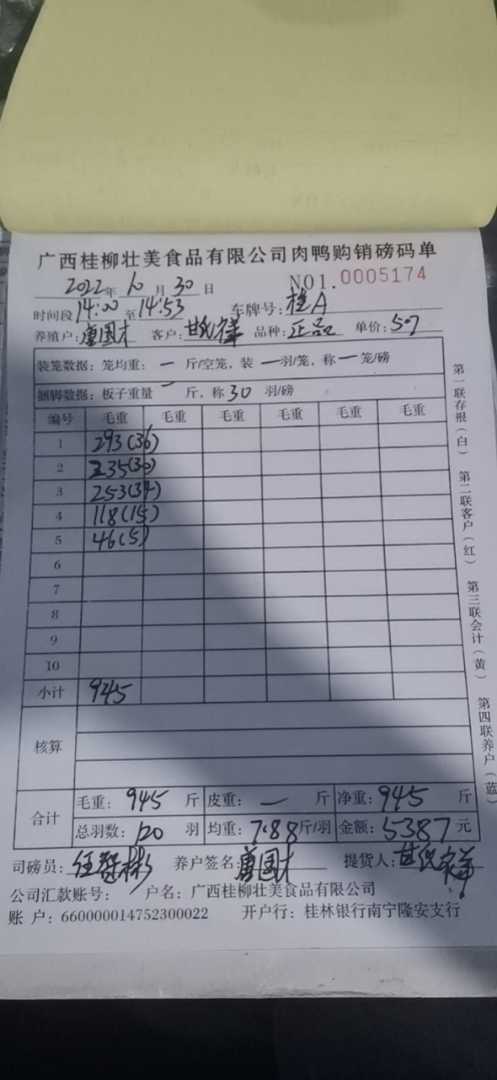 广西桂柳壮美食品有限公司肉鸭购销磅码单
2022年10月30日 NO1.0005174
时间段14:00至14:53 车牌号:桂A
养殖户:唐国才 客户: 品种:正品 单价:5.7
装笼数据:笼均重:一斤/空笼,装一羽/笼,称一笼/磅
捆脚数据:板子重量一斤,称30羽/磅
编号 毛重 毛重 毛重 毛重 毛重 毛重
1 293(36)
2 235(30)
3 253(34)
4 118(15)
5 46(5)
6
7
8
9
10
小计 945
核算
合计 毛重:945斤 皮重:一斤 净重:945斤
总羽数:120羽 均重:7.88斤/羽 金额:5387元
司磅员: 养户签名:唐国才 提货人:
公司汇款账号: 户名:广西桂柳壮美食品有限公司
账户:660000014752300022 开户行:桂林银行南宁隆安支行
第一联存根(白) 第二联客户(红) 第三联会计(黄) 第四联养户(蓝)